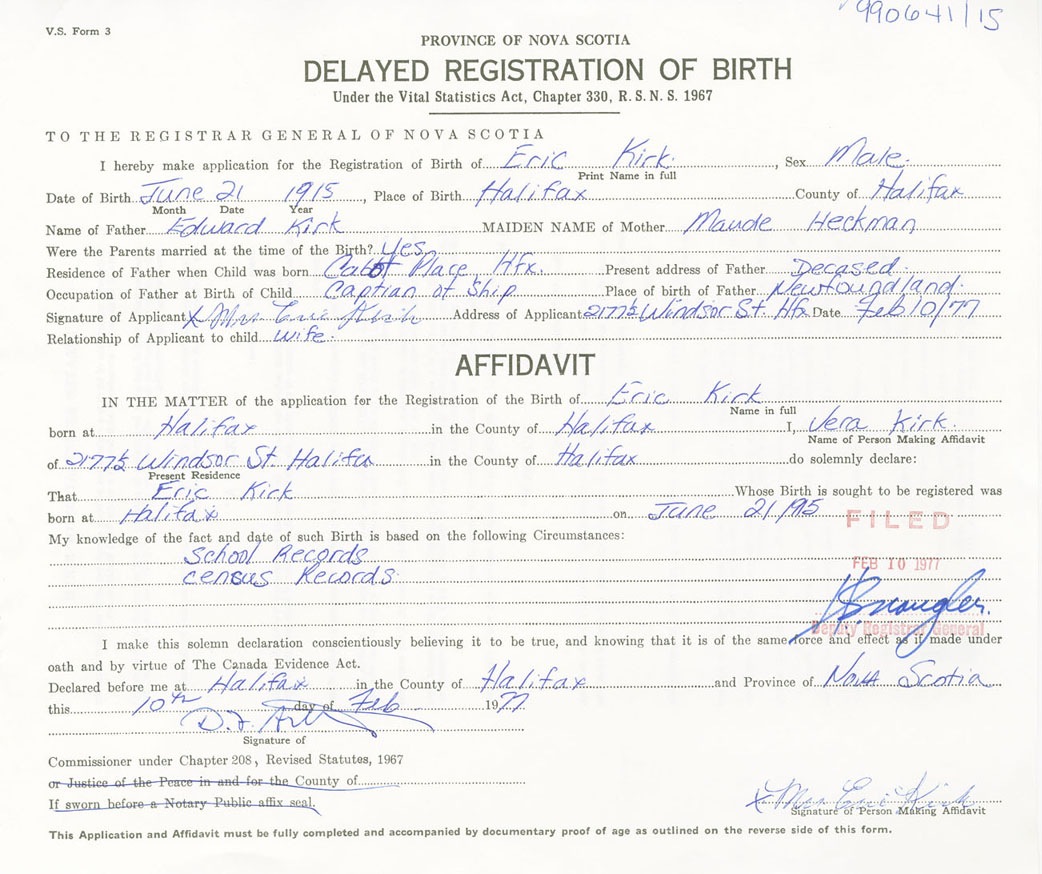 V.S. Form 3
990641/15
PROVINCE OF NOVA SCOTIA
DELAYED REGISTRATION OF BIRTH
Under the Vital Statistics Act, Chapter 330, R. S. N. S. 1967
TO THE REGISTRAR GENERAL OF NOVA SCOTIA
I hereby make application for the Registration of Birth of Eric Kirk. , Sex Male.
Print Name in full
Date of Birth June 21 1915, Place of Birth Halifax County of Halifax
Month Date Year
Name of Father Edward Kirk MAIDEN NAME of Mother Maude Heckman
Were the Parents married at the time of the Birth? Yes.
Residence of Father when Child was born Cabot Place, Hfx. Present address of Father Decased.
Occupation of Father at Birth of Child Captian of Ship Place of birth of Father Newfoundland.
Signature of Applicant x Mrs Eric Kirk Address of Applicant 2177½ Windsor St. Hfx Date Feb 10/77
Relationship of Applicant to child wife.
AFFIDAVIT
IN THE MATTER of the application for the Registration of the Birth of Eric Kirk
Name in full
born at Halifax in the County of Halifax I, Vera Kirk.
Name of Person Making Affidavit
of 2177½ Windsor St. Halifax in the County of Halifax do solemnly declare:
Present Residence
That Eric Kirk Whose Birth is sought to be registered was
born at Halifax on June 21/1915
FILED
My knowledge of the fact and date of such Birth is based on the following Circumstances:
School Records
FEB 10 1977
census Records.
Deputy Registrar General
I make this solemn declaration conscientiously believing it to be true, and knowing that it is of the same force and effect as if made under
oath and by virtue of The Canada Evidence Act.
Declared before me at Halifax in the County of Halifax and Province of Nova Scotia
this 10th day of Feb 1977
D.F.
Signature of
Commissioner under Chapter 208, Revised Statutes, 1967
or Justice of the Peace in and for the County of
If sworn before a Notary Public affix seal.
x Mrs Eric Kirk
Signature of Person Making Affidavit
This Application and Affidavit must be fully completed and accompanied by documentary proof of age as outlined on the reverse side of this form.